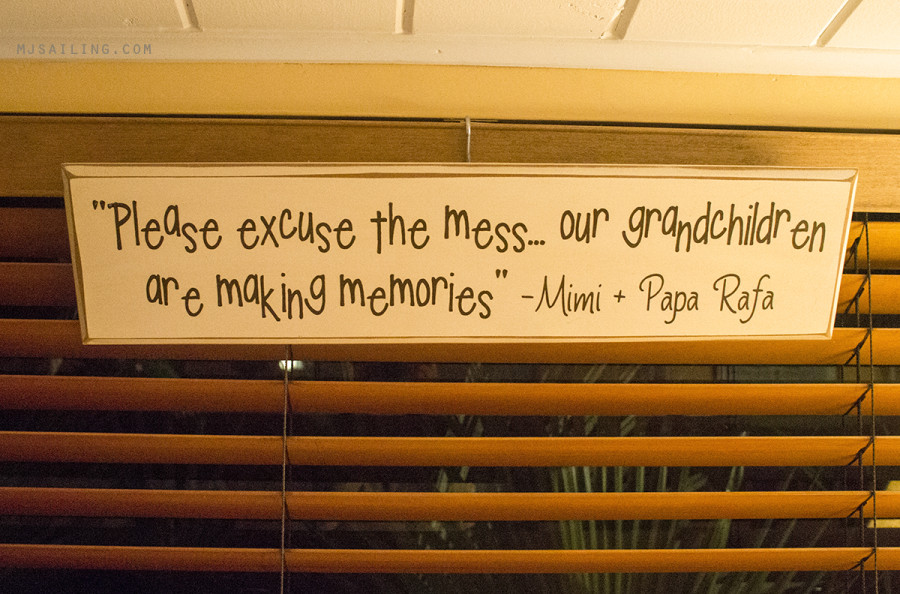 MJSAILING.COM
"Please excuse the mess... our grandchildren
are making memories" -Mimi + Papa Rafa